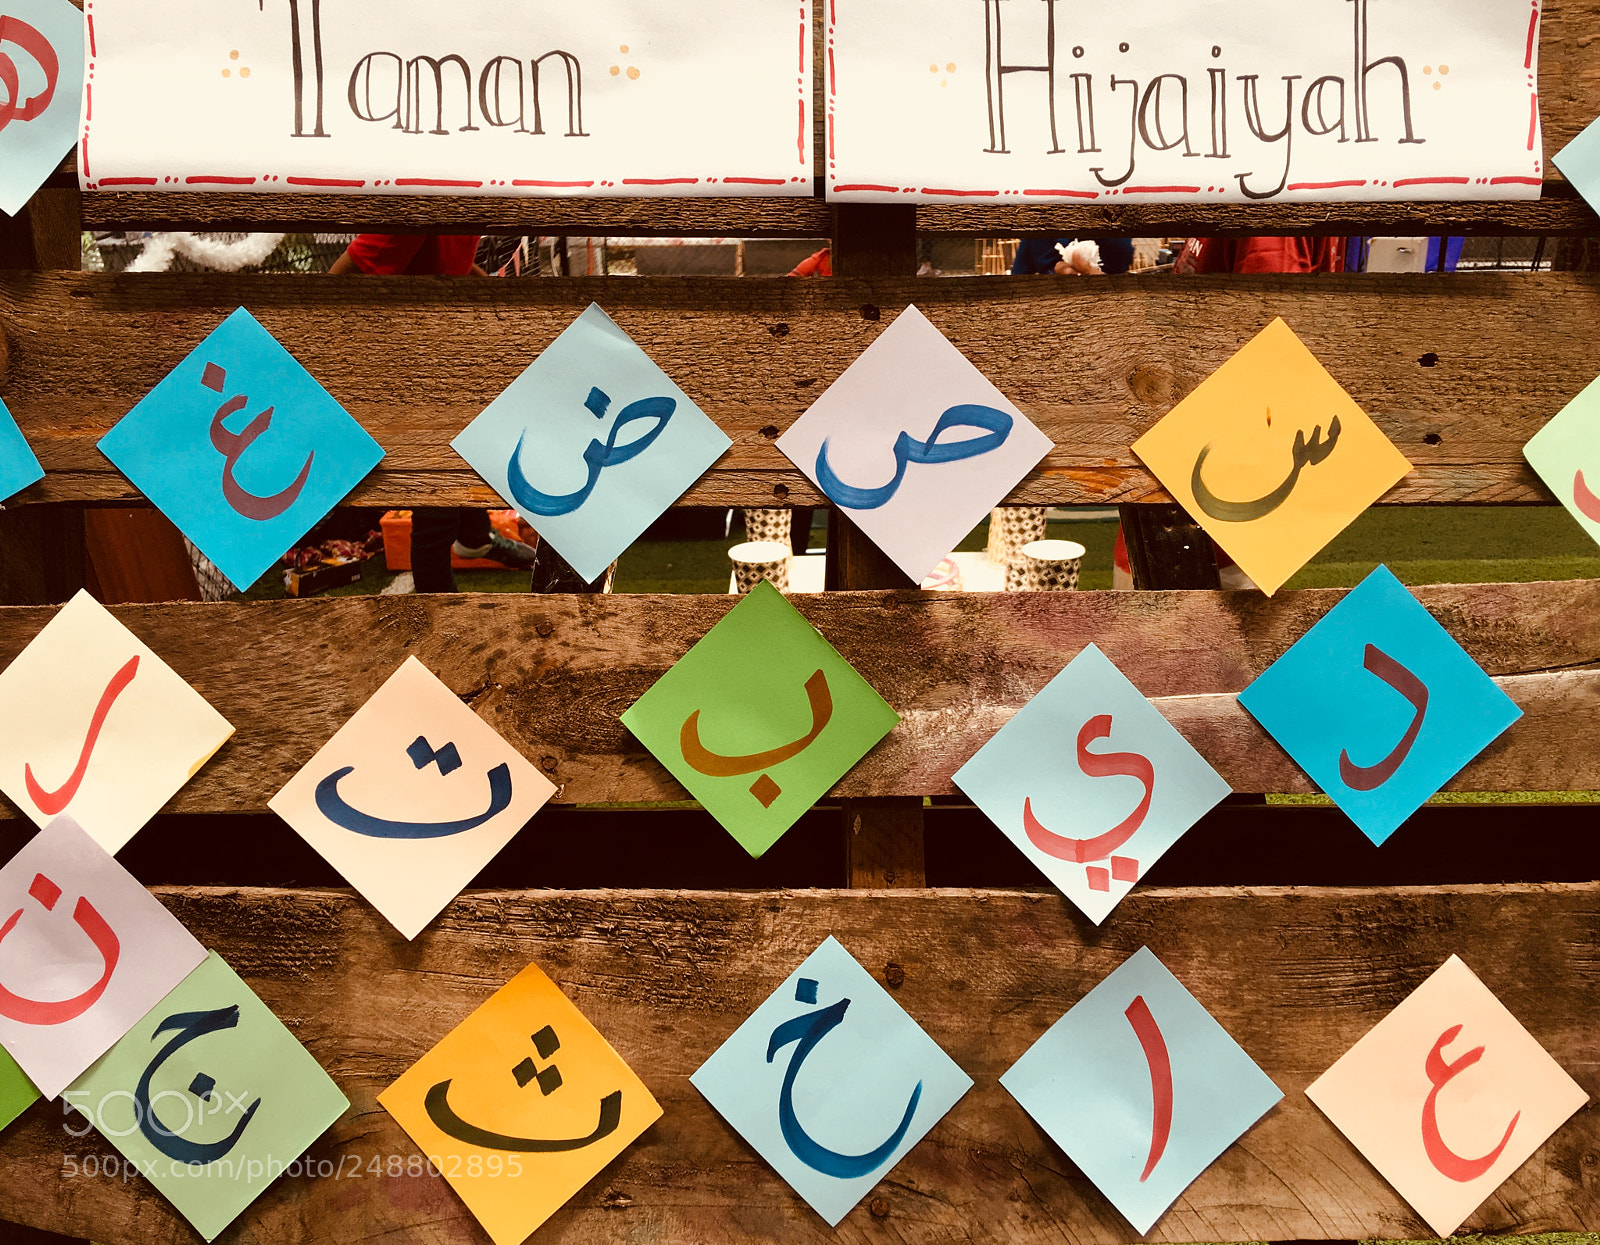 Taman Hijaiyah
س ص ض غ
د ي ب ت ر
ن
ع ا خ ث ج
500px
500px.com/photo/248802895